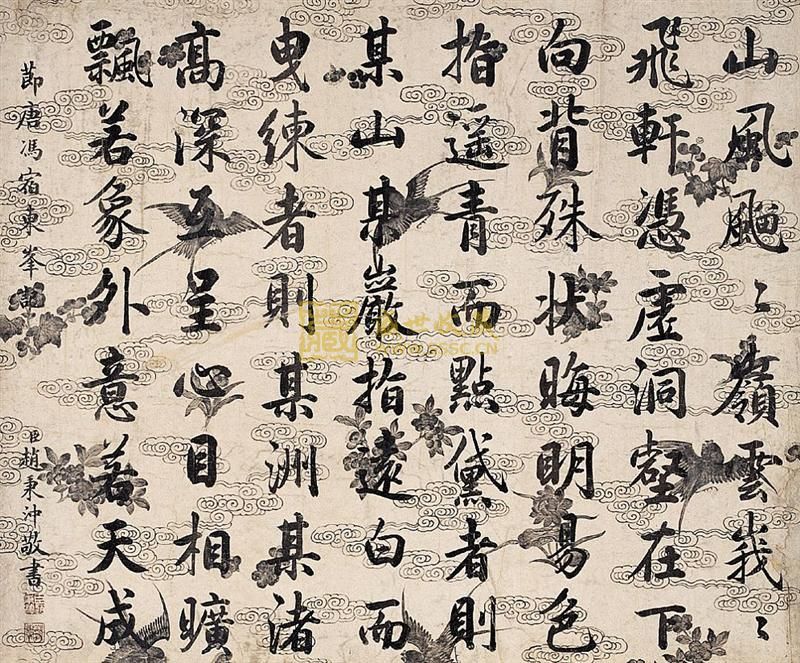 山風颸〻嶺雲峩〻
飛軒憑虛洞壑在下
向背殊狀晦明易色
指遥青而點黛者則
某山某巖指遠白而
曳練者則某洲某渚
高深互呈心目相曠
飄若象外意若天成
節唐馮宿東峯記
臣趙秉沖敬書